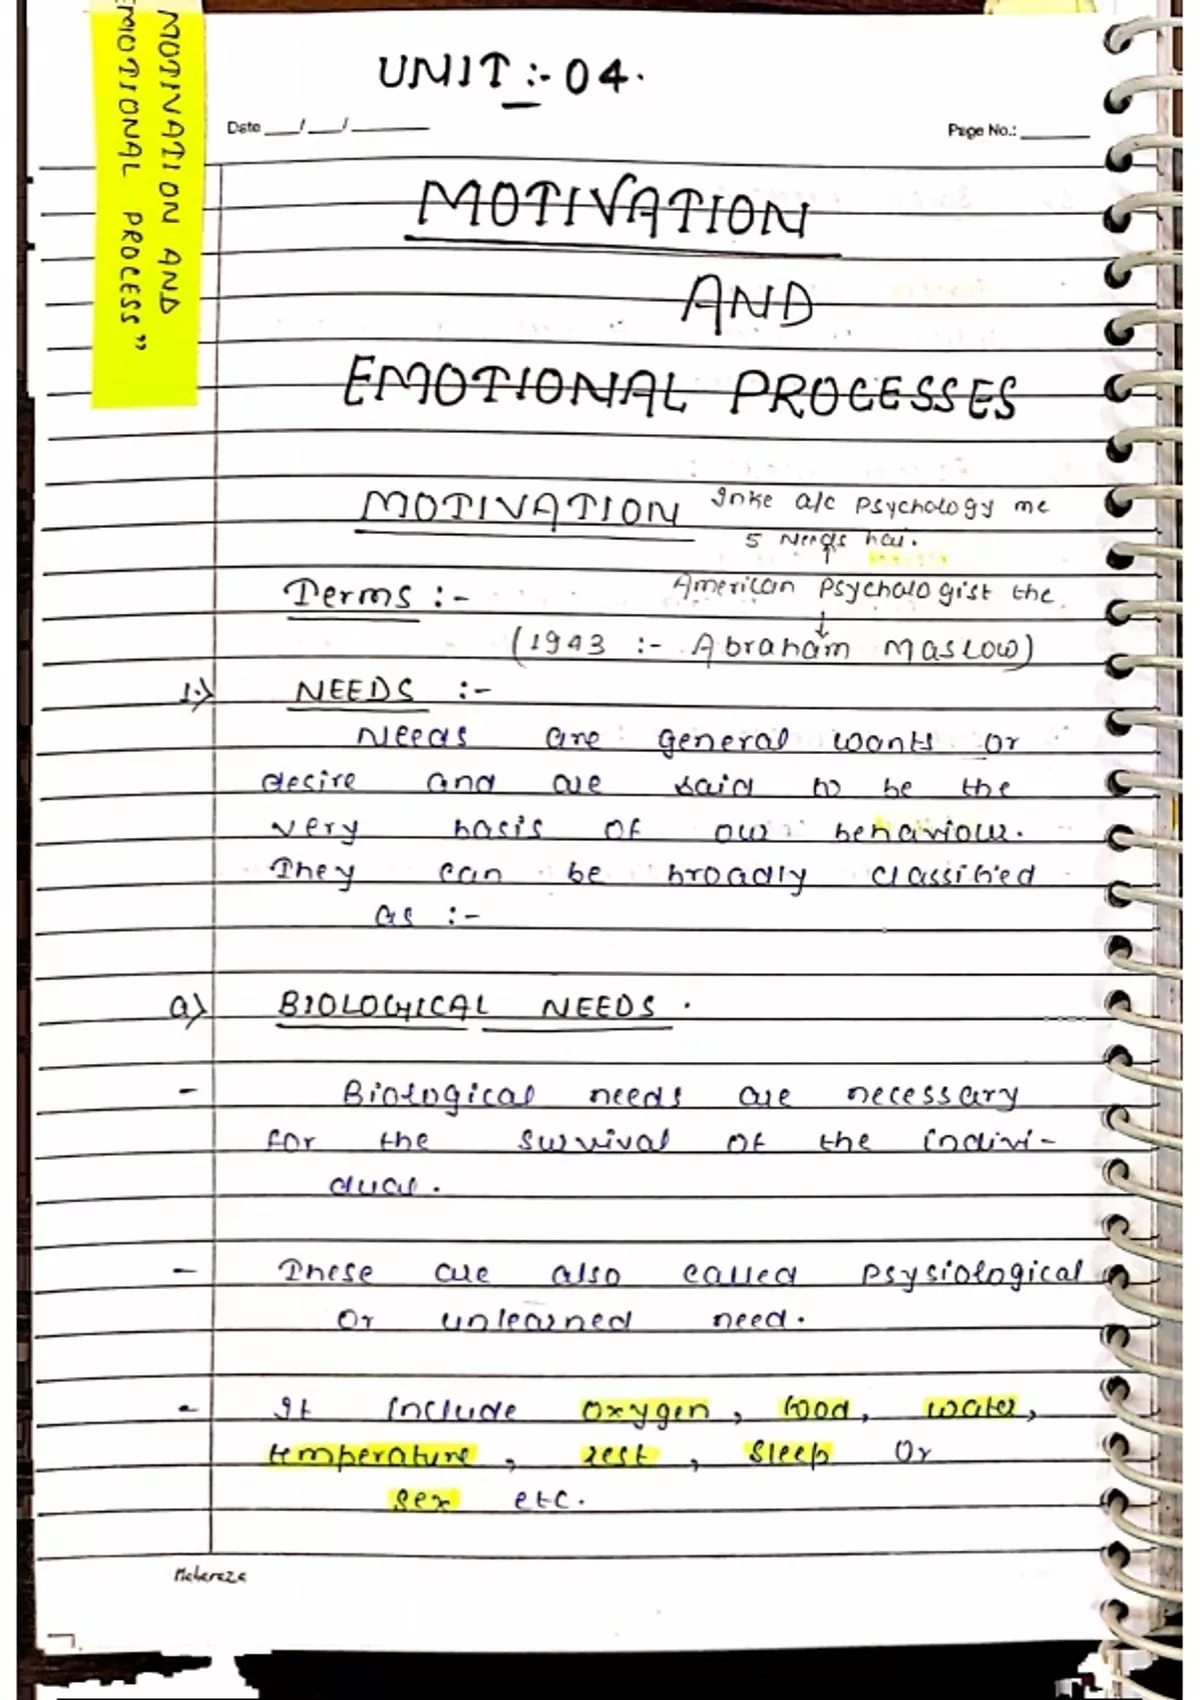 MOTIVATION AND
EMOTIONAL PROCESS"
UNIT :- 04.
Date __/__/____
Page No.: ____
MOTIVATION
AND
EMOTIONAL PROCESSES
MOTIVATION
Inke a/c Psychology me
5 Needs hai.
American Psychologist the.
Terms :-
(1943 :- Abraham Maslow)
1.) NEEDS :-
Needs are general wants or
desire and are said to be the
very basis of our behaviour.
They can be broadly classified
as :-
a) BIOLOGICAL NEEDS.
- Biological needs are necessary
for the survival of the indivi-
dual.
- These are also called psysiological
or unlearned need.
- It include oxygen, food, water,
temperature, rest, sleep or
sex etc.